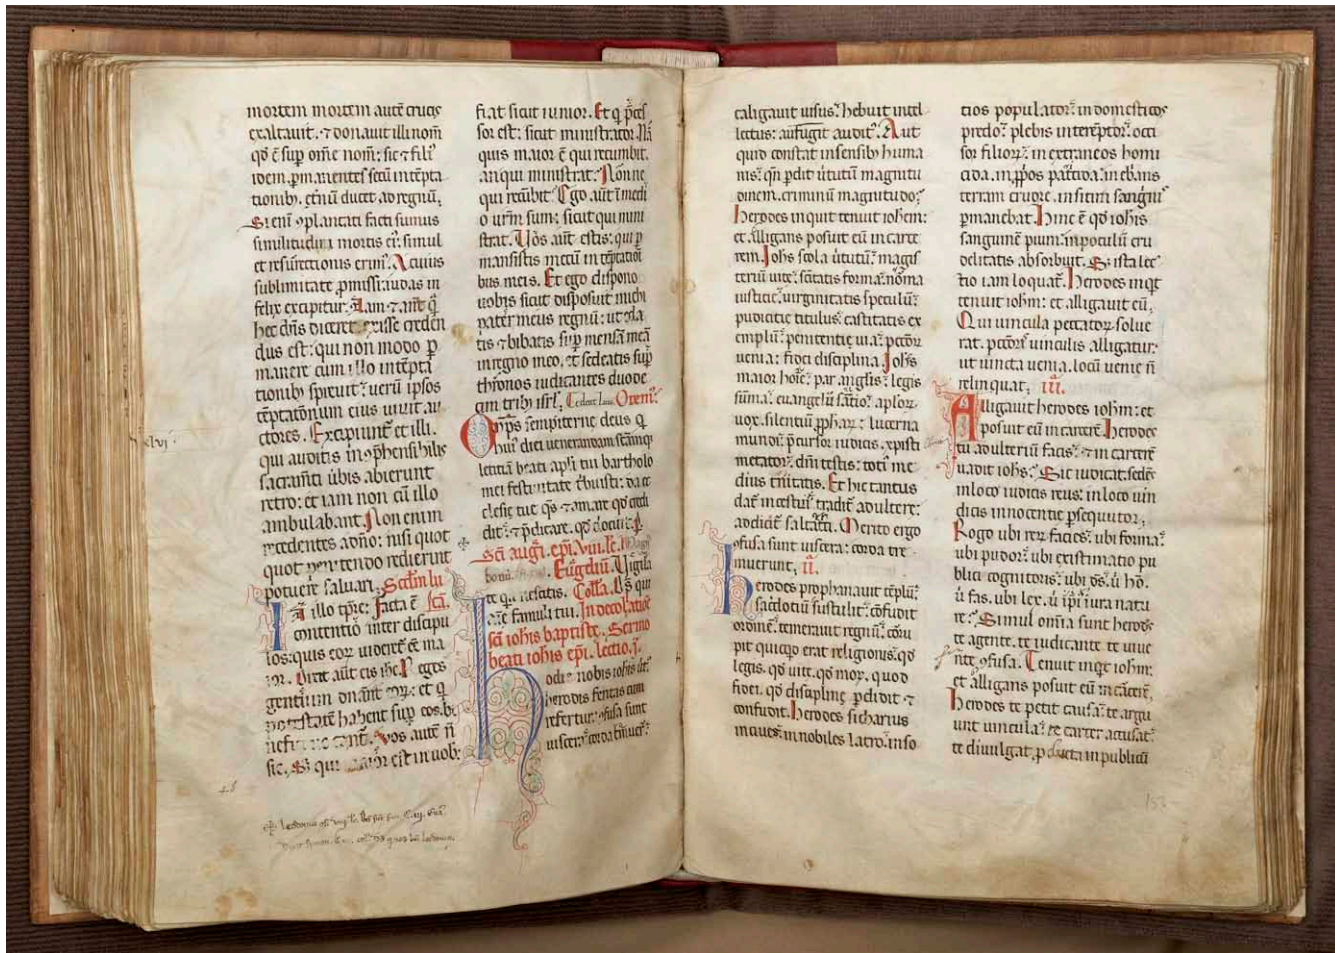 mortem mortem autē crucis
exaltauit. ⁊ donauit illi nom̄
qd̄ ē sup om̄e nom̄: sic ⁊ fili᷒
idem pm̄anentes secū in tēpta
tionib; et̄nū ducet ad regnū,
Si enī ꝯplantati facti sumus
similitudini mortis ei᷒: simul
et resurectionis erim᷒. A cuius
sublimitate ꝓmissi: iudas in
felix excipitur. Iam ⁊ ant̄ q̄
hec dn̄s diceret exisse creden
dus est: qui non modo ꝑ
manere cum illo in tēpta
tionib; spreuit: uerū ipsos
tēptatorum eius
ctores. Excipiunt᷑ et illi.
qui auditis inꝯp̄hensibilis
sacram̄ti ūbis abierunt
retro: et iam non cū illo
ambulabant. Non enim
recedentes a dn̄o: nisi quot
quot penitendo redierunt
potuerē saluari. Scd̄m lu
In illo tp̄re: facta ē
contentio inter discipu
los: quis eoꝝ uideret᷑ eē ma
ior. Dixit aūt eis ih̄c. Reges
gentium dn̄ant᷑ eoꝝ: et q̄
potestatē habent sup eos. b̄n
uocant᷑. Uos autē n̄
sic. S; qui maior est in uob᷒:
fiat sicut iunior. Et q̄ p̄ces
sor est: sicut ministrator. Nā
quis maior ē qui recumbit.
an qui ministrat: Nonne
qui recūbit: Ego aūt ī medi
o ur̄m sum: sicut qui mini
strat. Uos aūt estis: qui ꝑ
mansistis mecū in tēptatioī
bus meis. Et ego dispono
uobis sicut disposuit michi
pater meus regnū: ut eda
tis ⁊ bibatis sup mensā meā
in regno meo. ⁊ sedeatis sup
thronos iudicantes duode
cim trib; isrl̄, Oremꝰ
Om̄ps sempiterne deus q̄
hui᷒ diei uenerandam sc̄amq;
letitiā beati apl̄i tui bartholo
mei festiuitate t̄buisti: da ec
clesie tue q̄s ⁊ amare qd̄ credi
dit: ⁊ p̄dicare. qd̄ docuit. ꝑ.
Sc̄i aug̃. ep̄i.
Vigila
te q̄a nescitis. Coll̄a.
famuli tui. In decolatiōe
sc̄i ioh̄is baptiste. Sermo
beati ioh̄is ep̄i. lectio. j.
Hodie nobis ioh̄is
herodis feritas cum
refertur: ꝯfusa sunt
uiscera: corda
caligauit uisus: hebuit intel
lectus: aufugit audit᷒. Aut
quid constat in sensib; huma
nis: qn̄ ꝑdit uirtutū magnitu
dinem. criminū magnitudo:
Herodes inquit tenuit ioh̄em:
et alligans posuit eū in carce
rem. Ioh̄s scola uirtutū: magis
teriū uite: sc̄itatis forma: noma
iusticie: uirginitatis speculū:
pudicitie titulus: castitatis ex
emplū: penitentie uia: peccoꝝ
uenia: fidei disciplina. Ioh̄s
maior hoīe: par angl̄is: legis
sūma: euangelii sāctio: apl̄oꝝ
uox. silentiū ꝓphaꝝ: lucerna
mundi: p̄cursor iudicis. xp̄isti
metator: dn̄i testis: toti᷒ me
dius trinitatis. Et hic tantus
dat᷑ incestui: tradit᷑ adultere:
addicit᷑ saltatrici. Merito ergo
ꝯfusa sunt uiscera: corda tre
muerunt, ii.
Herodes prophanauit tēplū:
sacerdotiū sustulit: cōfudit
ordinē: temerauit regnū: coru
pit quicqd erat religionis: qd̄
legis. qd̄ uite. qd̄ moꝝ. quod
fidei. qd̄ discipline ꝑdidit ⁊
confudit. Herodes sicharius
in ciues: in nobiles latro: in so
cios populator: in domesticos
predo: plebis interēptor: occi
sor filioꝝ: in extraneos homi
cida. in ꝓpos paricida: in ebriāns
terram cruore. in sitim sanguī᷒
ꝑmanebat. Hinc ē qd̄ ioh̄is
sanguinē pium: in poculū cru
delitatis absorbuit. S; ista lec
tio iam loquat᷑. Herodes inqt
tenuit ioh̄m: et alligauit eū,
Qui uincula peccatoꝝ solue
rat. peccoꝝ uinculis alligatur:
ut uincta uenia. locū uenie n̄
relinquat, iii.
Alligauit herodes ioh̄m: et
posuit eū in carcerē. Herodes
tu adulteriū facis: ⁊ in carcerē
uadit ioh̄s: Sic iudicat. sedēs
in loco iudicis reus: in loco uin
dicis innocentie ꝑsequutor,
Rogo ubi reꝝ facies: ubi forma:
ubi pudor: ubi existimatio pu
blici cognitoris: ubi d̄s: ū hō.
ū fas. ubi lex. ū ip̄i᷒ iura natu
re: Simul om̄ia sunt herode
te agente. te iudicante te iuue
nte ꝯfusa. Tenuit inq̄t ioh̄m:
et alligans posuit eū in carcerē,
Herodes te petit causa: te argu
unt uincula: te carcer accusat:
te diuulgat. ꝓducta in publicū